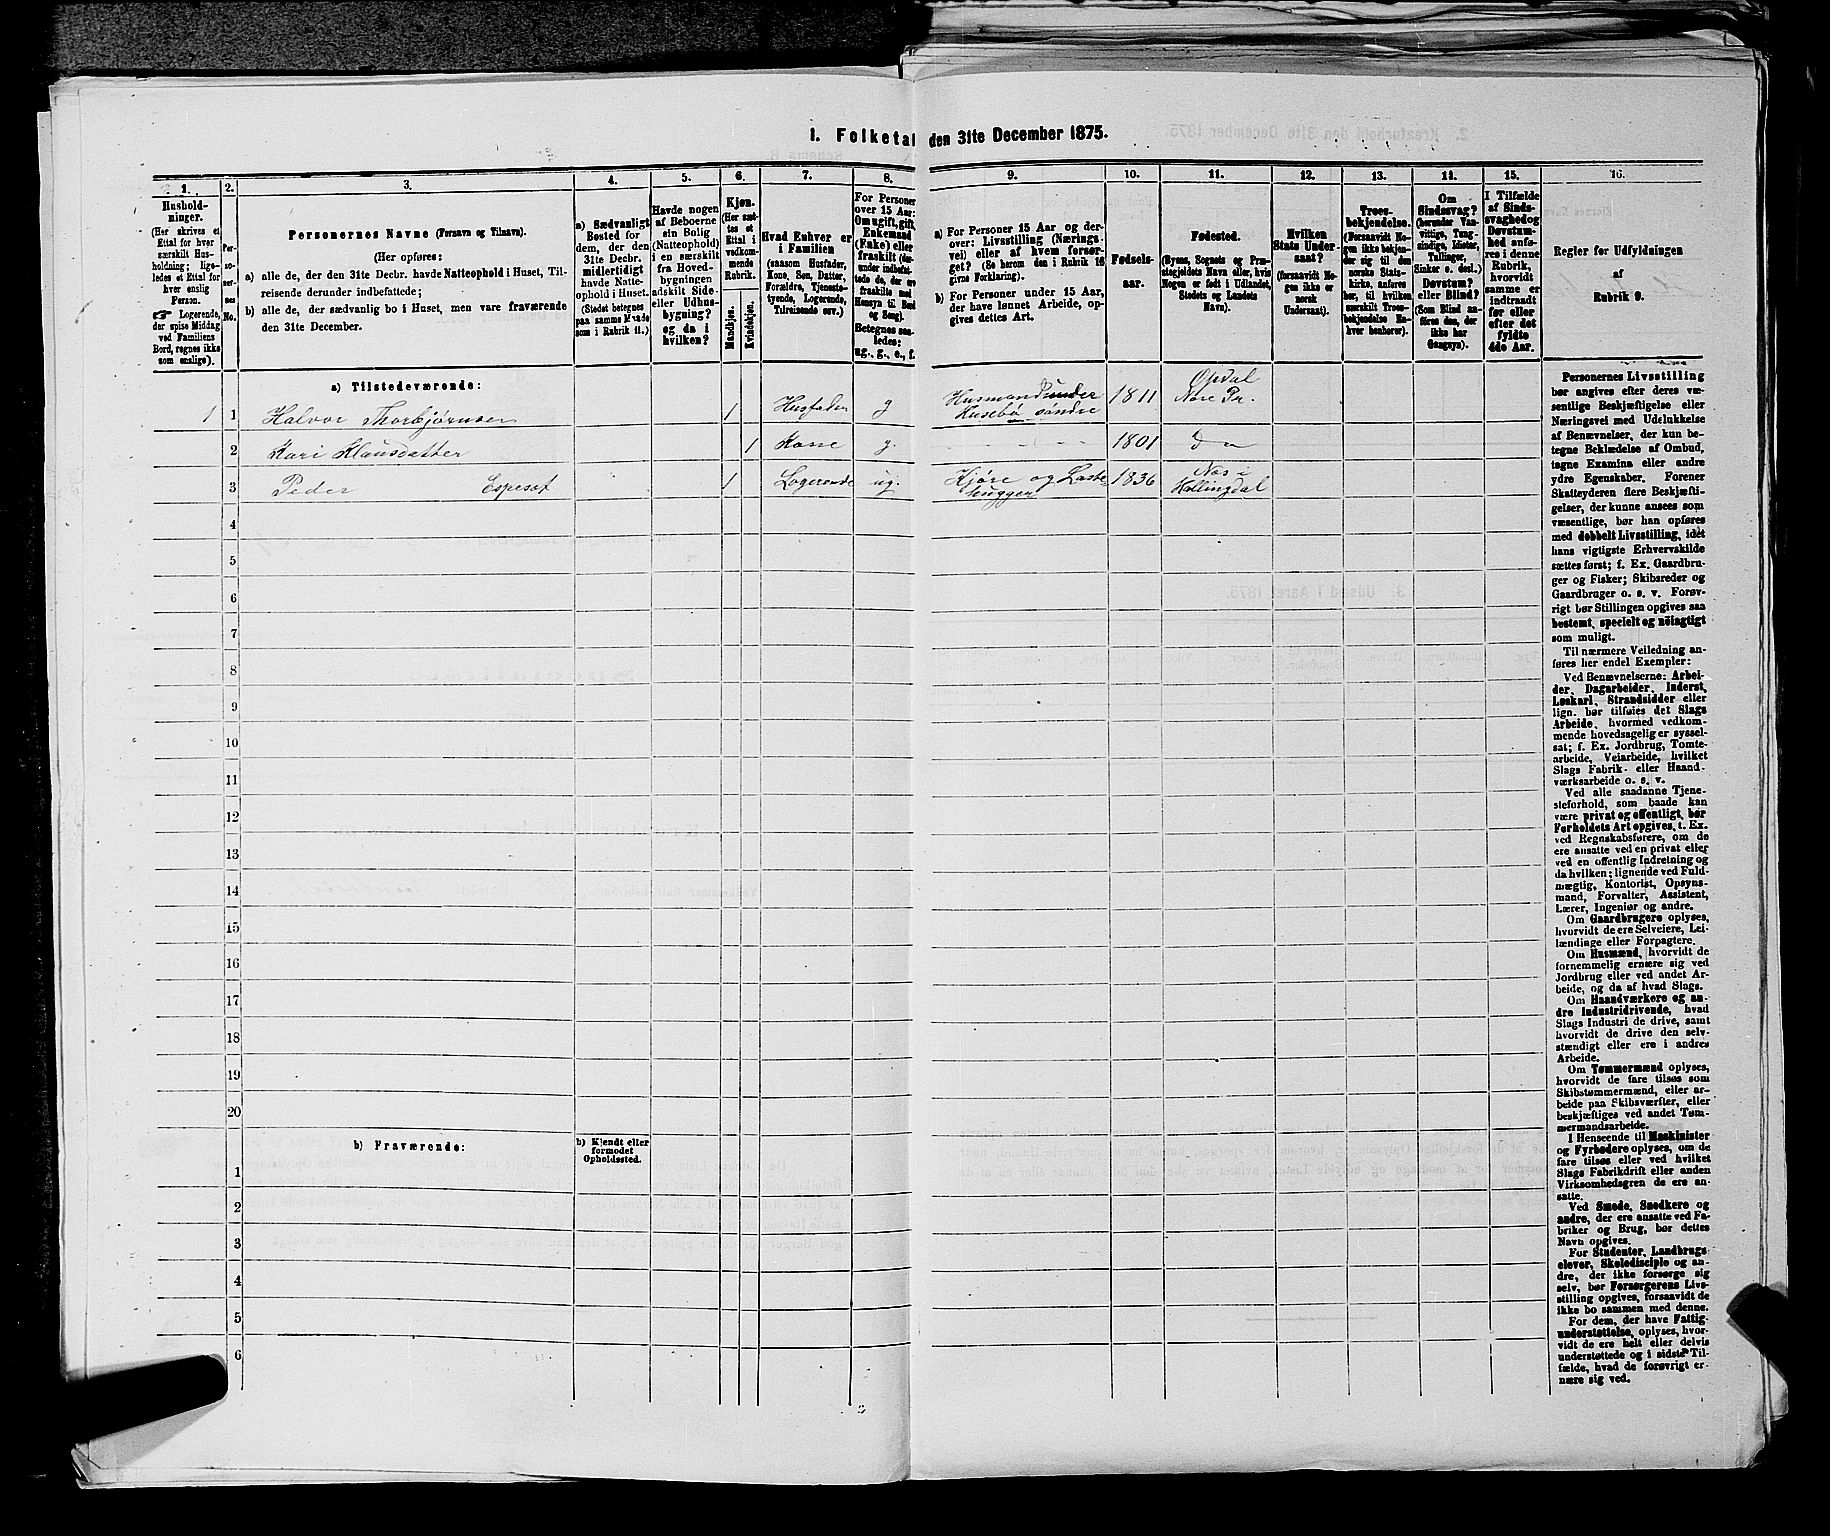 1. Folketal den 31te December 1875.
1. 2. 3. 4. 5. 6. 7. 8. 9. 10. 11. 12. 13. 14. 15. 16.
Hushold-
ninger.
(Her skrives et
Ettal for hver
særskilt Hus-
holdning; lige-
ledes et Ettal for
hver enslig
Person.
☞ Logerende,
der spise Middag
ved Familiens
Bord, regnes ikke
som enslige).
Per-
so-
ner-
nes
No.
Personernes Navne (Fornavn og Tilnavn).
(Her opføres:
a) alle de, der den 31te Decbr. havde Natteophold i Huset, Til-
reisende derunder indbefattede;
b) alle de, der sædvanlig bo i Huset, men vare fraværende
den 31te December.
a) Sædvanligt
Bosted for
dem, der den
31te Decbr.
midlertidigt
havde Natte-
ophold i Huset.
(Stedet betegnes
paa samme Maade
som i Rubrik 11.)
Havde nogen
af Beboerne
sin Bolig
(Natteophold)
i en særskilt
fra Hoved-
bygningen
adskilt Side-
eller Udhus-
bygning?
og da i
hvilken?
Kjøn.
(Her sæt-
tes et
Ettal i
vedkom-
mende
Rubrik.
Mandkjøn.
Kvindekjøn.
Hvad Enhver er
i Familien
(saasom Husfader,
Kone, Søn, Datter,
Forældre, Tjeneste-
tyende, Logerende,
Tilreisende osv.)
For Personer
over 15 Aar:
Om ugift, gift,
Enkemand
(Enke) eller
fraskilt (der-
under indbefat-
tede de, der ere
fraskilte med
Hensyn til Bord
og Seng).
Betegnes saa-
ledes:
ug., g., e., f.
a) For Personer 15 Aar og der-
over: Livsstilling (Nærings-
vei) eller af hvem forsør-
get? (Se herom den i Rubrik 16
givne Forklaring).
b) For Personer under 15 Aar,
der have lønnet Arbeide, op-
gives dettes Art.
Fødsels-
aar.
Fødested.
(Byens, Sognets og Præ-
stegjeldets Navn eller, hvis
Nogen er født i Udlandet,
Stedets og Landets
Navn).
Hvilken
Stats Under-
saat?
(forsaavidt No-
gen ikke er
norsk
Undersaat).
Troes-
bekjendelse.
(Forsaavidt No-
gen ikke bekjen-
der sig til den
norske Stats-
kirke, anføres
her, til hvilken
særskilt Troes-
bekjendelse En-
hver henhører).
Om
Sindssvag?
(herunder Van-
vittige, Tung-
sindige, Idioter,
Tullinger,
Sinker o. desl.)
Døvstum?
eller Blind?
(Som Blind an-
føres den, der
ikke har
Gangsyn).
I Tilfælde
af Sinds-
svaghed og
Døvstum-
hed anfø-
res i denne
Rubrik,
hvorvidt
samme er
indtraadt
før eller
efter det
fyldte
4de Aar.
Regler for Udfyldningen
af
Rubrik 9.
a) Tilstedeværende:
1 1 Halvor Thorbjørnsen 1 Husfader g Husmand under Husebø søndre 1811 Opdal Nore Pr.
2 Kari Klausdatter 1 Kone g. - - - - 1801 do
3 Peder Espeset 1 Logerende ug. Kjøre og Laste- hugger 1836 Nes i Hallingdal
4
5
6
7
8
9
10
11
12
13
14
15
16
17
18
19
20
b) Fraværende:
b) Kjendt eller
formodet
Opholdssted.
1
2
3
4
5
6
Personernes Livsstilling
bør angives efter deres væ-
sentlige Beskjæftigelse eller
Næringsvei med Udelukkelse
af Benævnelser, der kun be-
tegne Beklædelse af Ombud,
tagne Examina eller andre
ydre Egenskaber. Forener
Skatteyderen flere Beskjæfti-
gelser, der kunne ansees som
væsentlige, bør han opføres
med dobbelt Livsstilling, idet
hans vigtigste Erhvervskilde
sættes først; f. Ex. Gaardbru-
ger og Fisker; Skibsreder og
Gaardbruger o. s. v. Forøv-
rigt bør Stillingen opgives saa
bestemt, specielt og nöiagtigt
som muligt.
Til nærmere Veiledning an-
føres her endel Exempler:
Ved Benævnelserne: Arbei-
der, Dagarbeider, Inderst,
Løskarl, Strandsidder eller
lign. bør tilføies det Slags
Arbeide, hvormed vedkom-
mende hovedsagelig er syssel-
sat; f. Ex. Jordbrug, Tomte-
arbeide, Veiarbeide, hvilket
Slags Fabrik- eller Haand-
værksarbeide o. s. v.
Ved alle saadanne Tjene-
steforhold, som baade kan
være privat og offentligt, bør
Forholdets Art opgives, t. Ex.
ved Regnskabsførere, om de
ere ansatte ved en privat eller
ved en offentlig Indretning og
da hvilken; lignende ved Fuld-
mægtig, Kontorist, Opsyns-
mand, Forvalter, Assistent,
Lærer, Ingeniør og andre.
Om Gaardbrugere oplyses,
hvorvidt de ere Selveiere, Lei-
lændinge eller Forpagtere.
Om Husmænd, hvorvidt de
fornemmelig ernære sig ved
Jordbrug eller ved andet Ar-
beide, og da af hvad Slags.
Om Haandværkere og an-
dre Industridrivende, hvad
Slags Industri de drive, samt
hvorvidt de drive den selv-
stændigt eller ere i andres
Arbeide.
Om Tømmermænd oplyses,
hvorvidt de fare tilsøs som
Skibstømmermænd, eller ar-
beide paa Skibsværfter, eller
beskjæftiges ved andet Tøm-
mermandsarbeide.
I Henseende til Maskinister
og Fyrbødere oplyses, om de
fare tilsøs eller ved hvilket
Slags Fabrikdrift eller anden
Virksomhedsgren de ere an-
satte.
Ved Smede, Snedkere og
andre, der ere ansatte ved Fa-
briker og Brug, bør dettes
Navn opgives.
For Studenter, Landbrugs-
elever, Skoledisciple og an-
dre, der ikke forsørge sig
selv, bør Forsørgerens Livs-
stilling opgives, forsaavidt de
ikke bo sammen med denne.
For dem, der have Fattig-
understøttelse, oplyses, hvor-
vidt de ere helt eller delvis
understøttede og i sidste Til-
fælde, hvad de forøvrigt er-
nære sig ved.